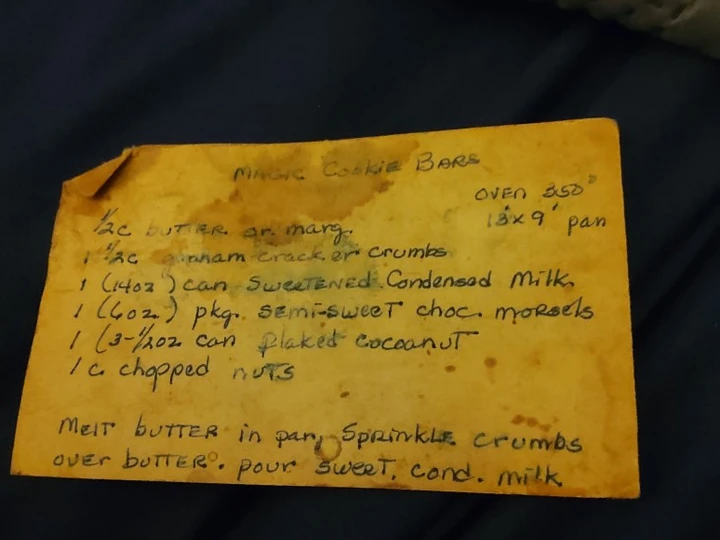 MAGIC COOKIE BARS
OVEN 350°
13"x 9" pan
1/2c BUTTER or marg.
1 1/2c graham cracker crumbs
1 (14oz) can SWEETENED Condensed Milk
1 (6oz.) pkg. semi-sweet choc. morsels
1 (3-1/2oz can flaked cocoanut
1 c chopped nuts
Melt butter in pan, Sprinkle crumbs
over butter. pour sweet. cond. milk